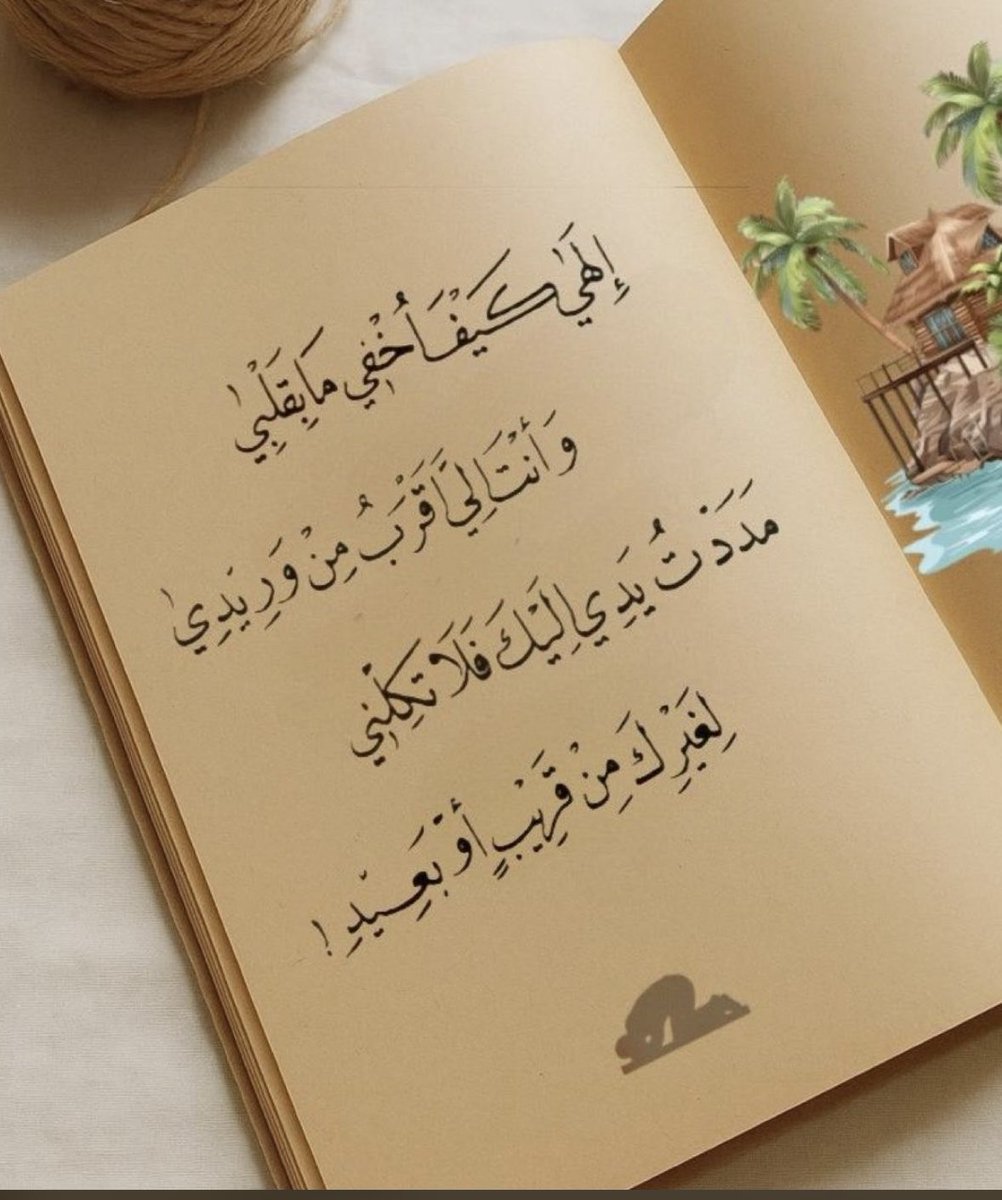 إِلَهِي كَيْفَ أُخْفِي مَا بِقَلْبِي
وَأَنْتَ لِي أَقْرَبُ مِنْ وَرِيدِي
مَدَدْتُ يَدِي إِلَيْكَ فَلَا تَكِلْنِي
لِغَيْرِكَ مِنْ قَرِيبٍ أَوْ بَعِيدِ !